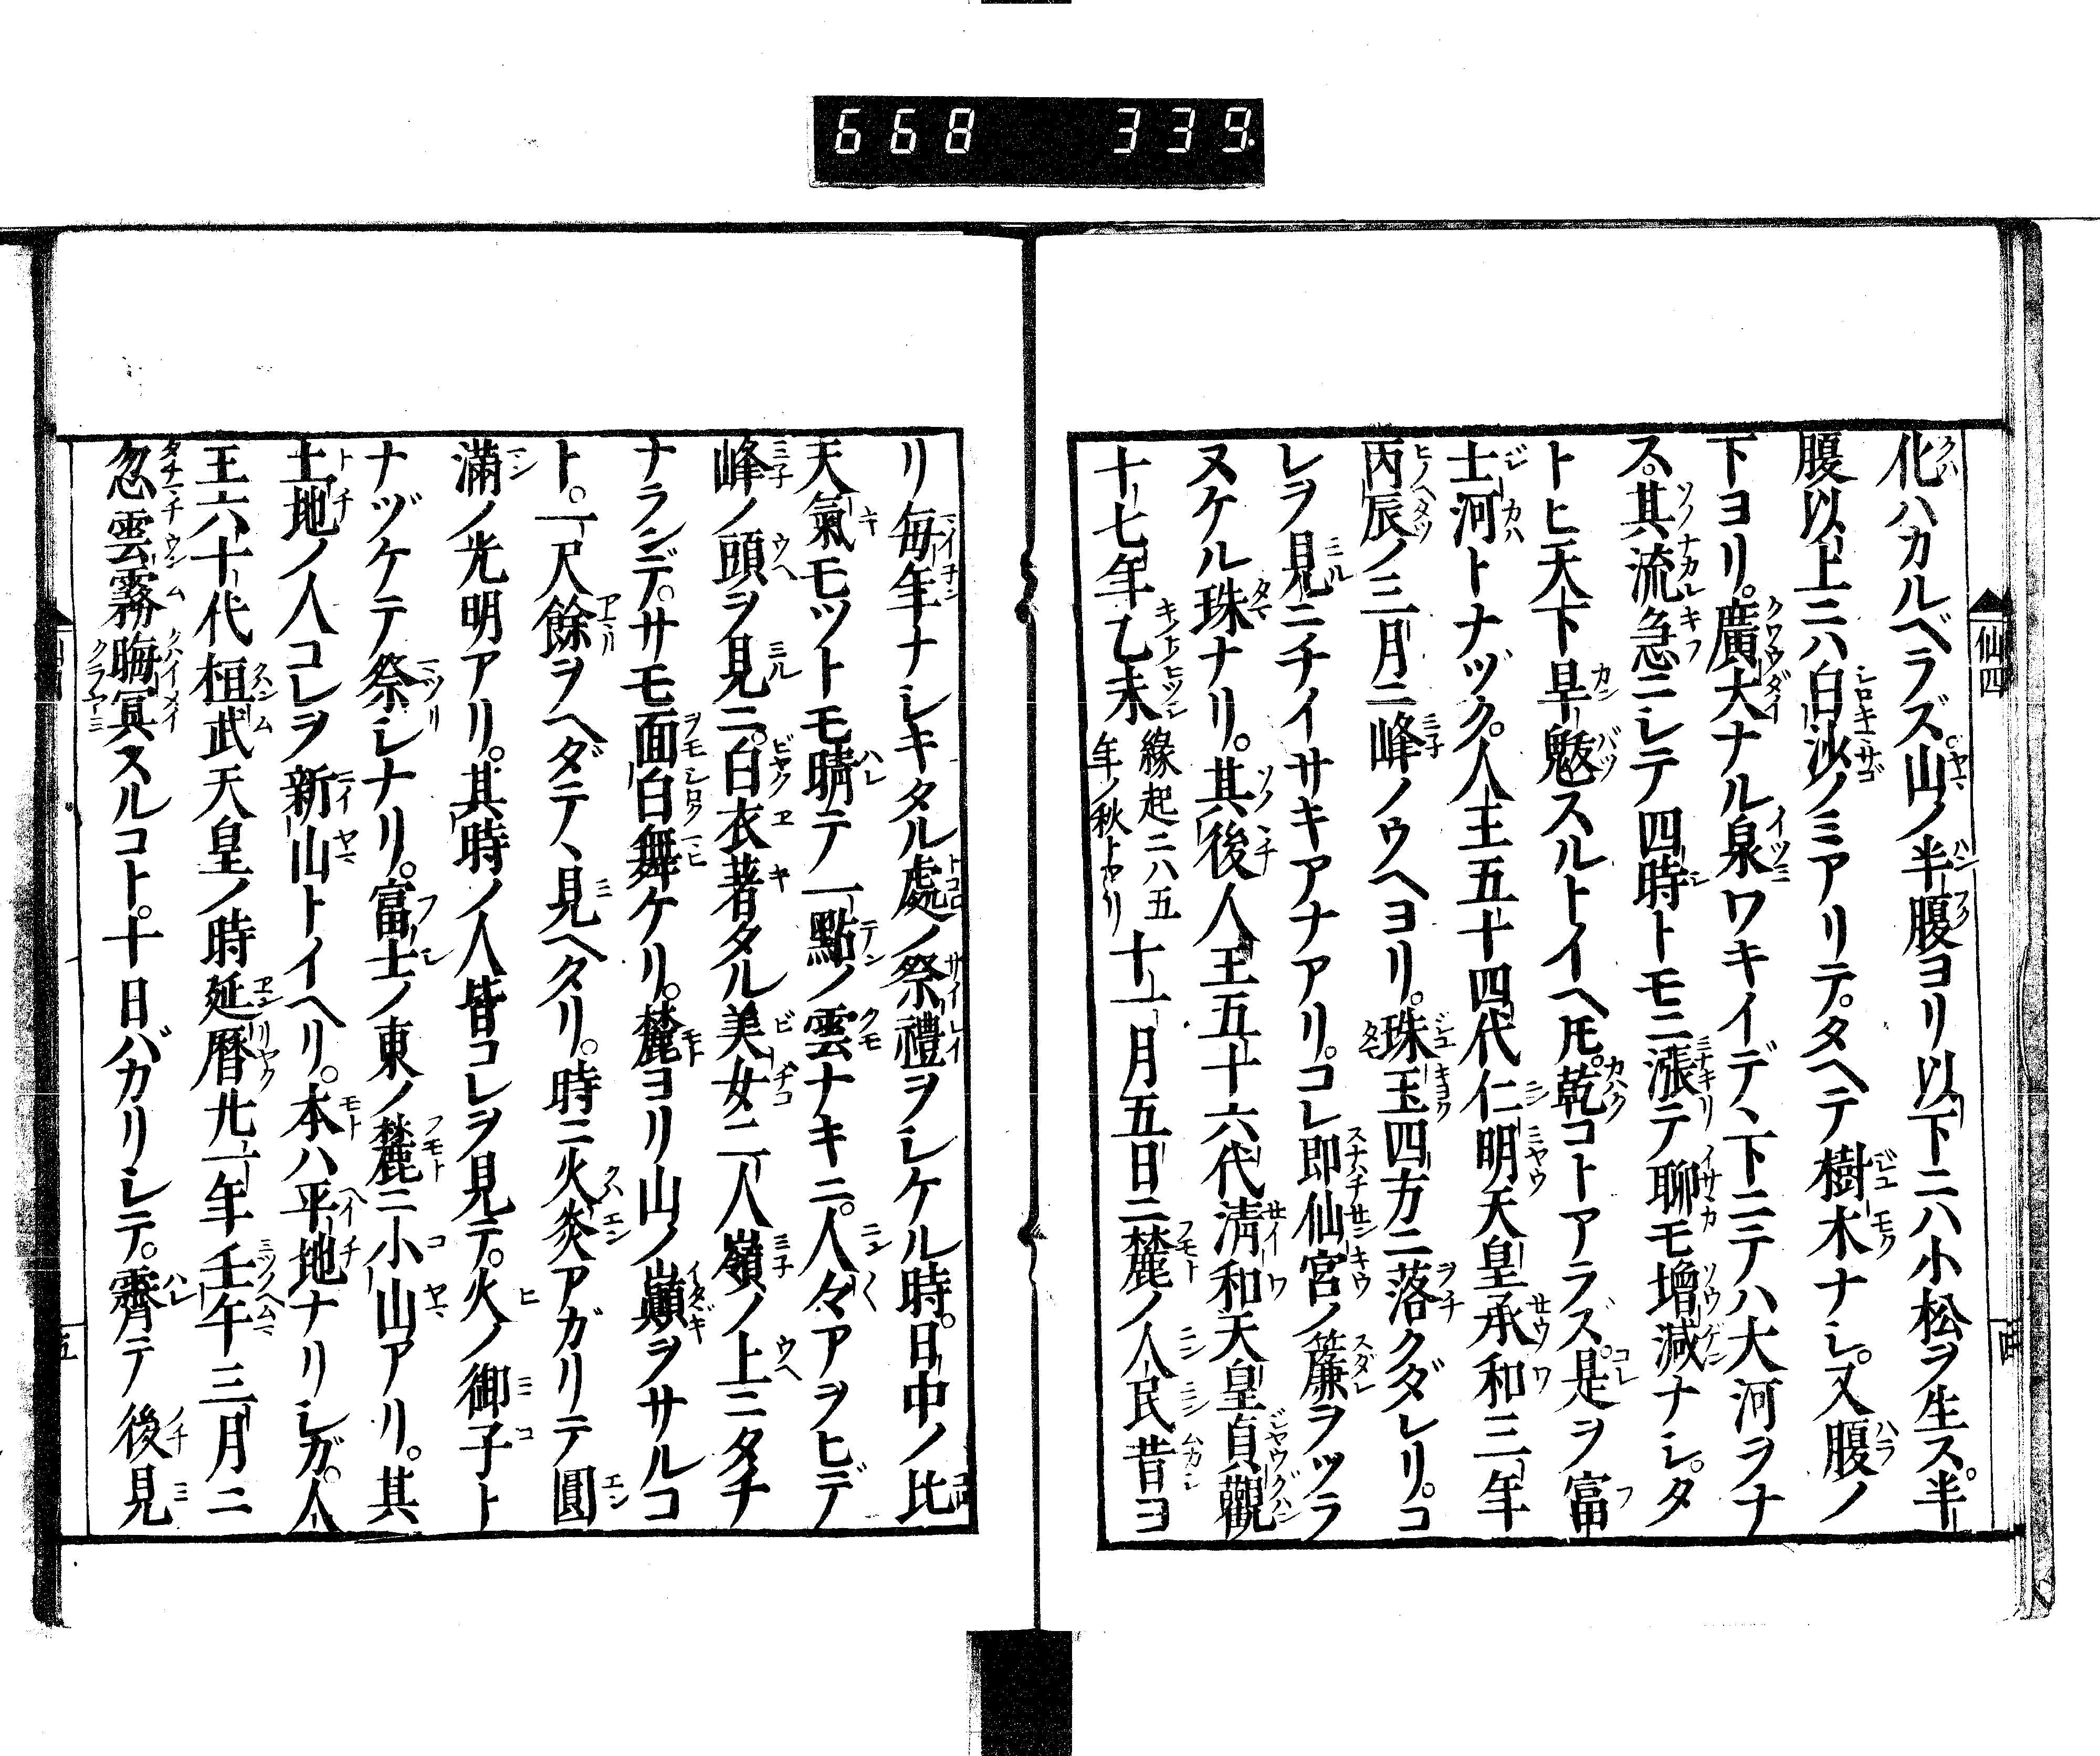 668 339
仙四
化ハカルベラズ。山ノ半腹ヨリ以下ニハ小松ヲ生ス。半
腹以上ニハ白沙ノミアリテ。タヘテ樹木ナシ。又腹ノ
下ヨリ。廣大ナル泉ワキイデ、下ニテハ大河ヲナ
ス。其流急ニシテ四時トモニ漲テ聊モ増減ナシ。タ
トヒ天下旱魃スルトイヘ𪜈。乾コトアラズ。是ヲ富
士河トナヅク。人王五十四代仁明天皇承和三年
丙辰ノ三月ニ峰ノウヘヨリ。珠玉四方ニ落クダレリ。コ
レヲ見ニチイサキアナアリ。コレ即仙宮ノ簾ヲツラ
ヌケル珠ナリ。其後人王五十六代淸和天皇貞觀
十七年乙未緣起ニハ五年ノ秋トヤリ十一月五日ニ麓ノ人民昔ヨ
リ毎年ナレキタル處ノ祭禮ヲシケル時。日中ノ比
天氣モツトモ晴テ一點ノ雲ナキニ。人々アヲヒデ
峰ノ頭ヲ見ニ。白衣著タル美女二人嶺ノ上ニタチ
ナランデ。サモ面白舞ケリ。麓ヨリ山ノ巓ヲサルコ
ト。一尺餘ヲヘダテ、見ヘタリ。時ニ火炎アガリテ圓
滿ノ光明アリ。其時ノ人皆コレヲ見テ。火ノ御子ト
ナヅケテ祭シナリ。富士ノ東ノ麓ニ小山アリ。其
土地ノ人コレヲ新山トイヘリ。本ハ平地ナリシガ。人
王六十代桓武天皇ノ時延暦廿一年壬午三月ニ
忽雲霧晦冥スルコト。十日バカリシテ。霽テ後見
五